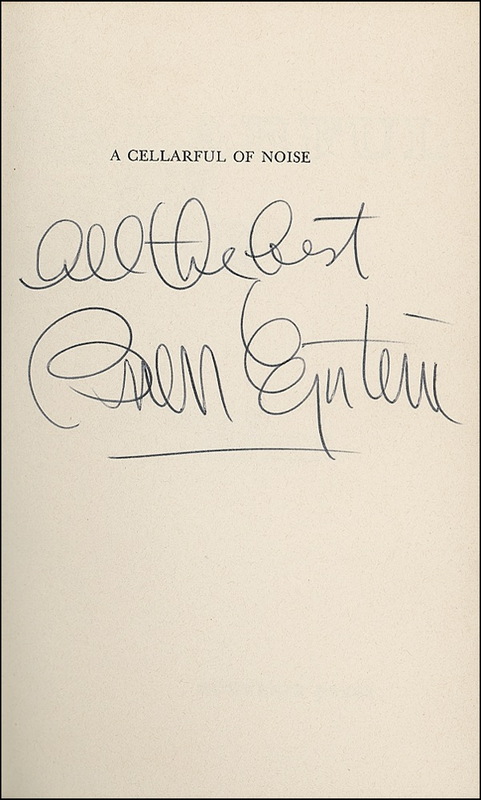 A CELLARFUL OF NOISE
All the best
Brian Epstein